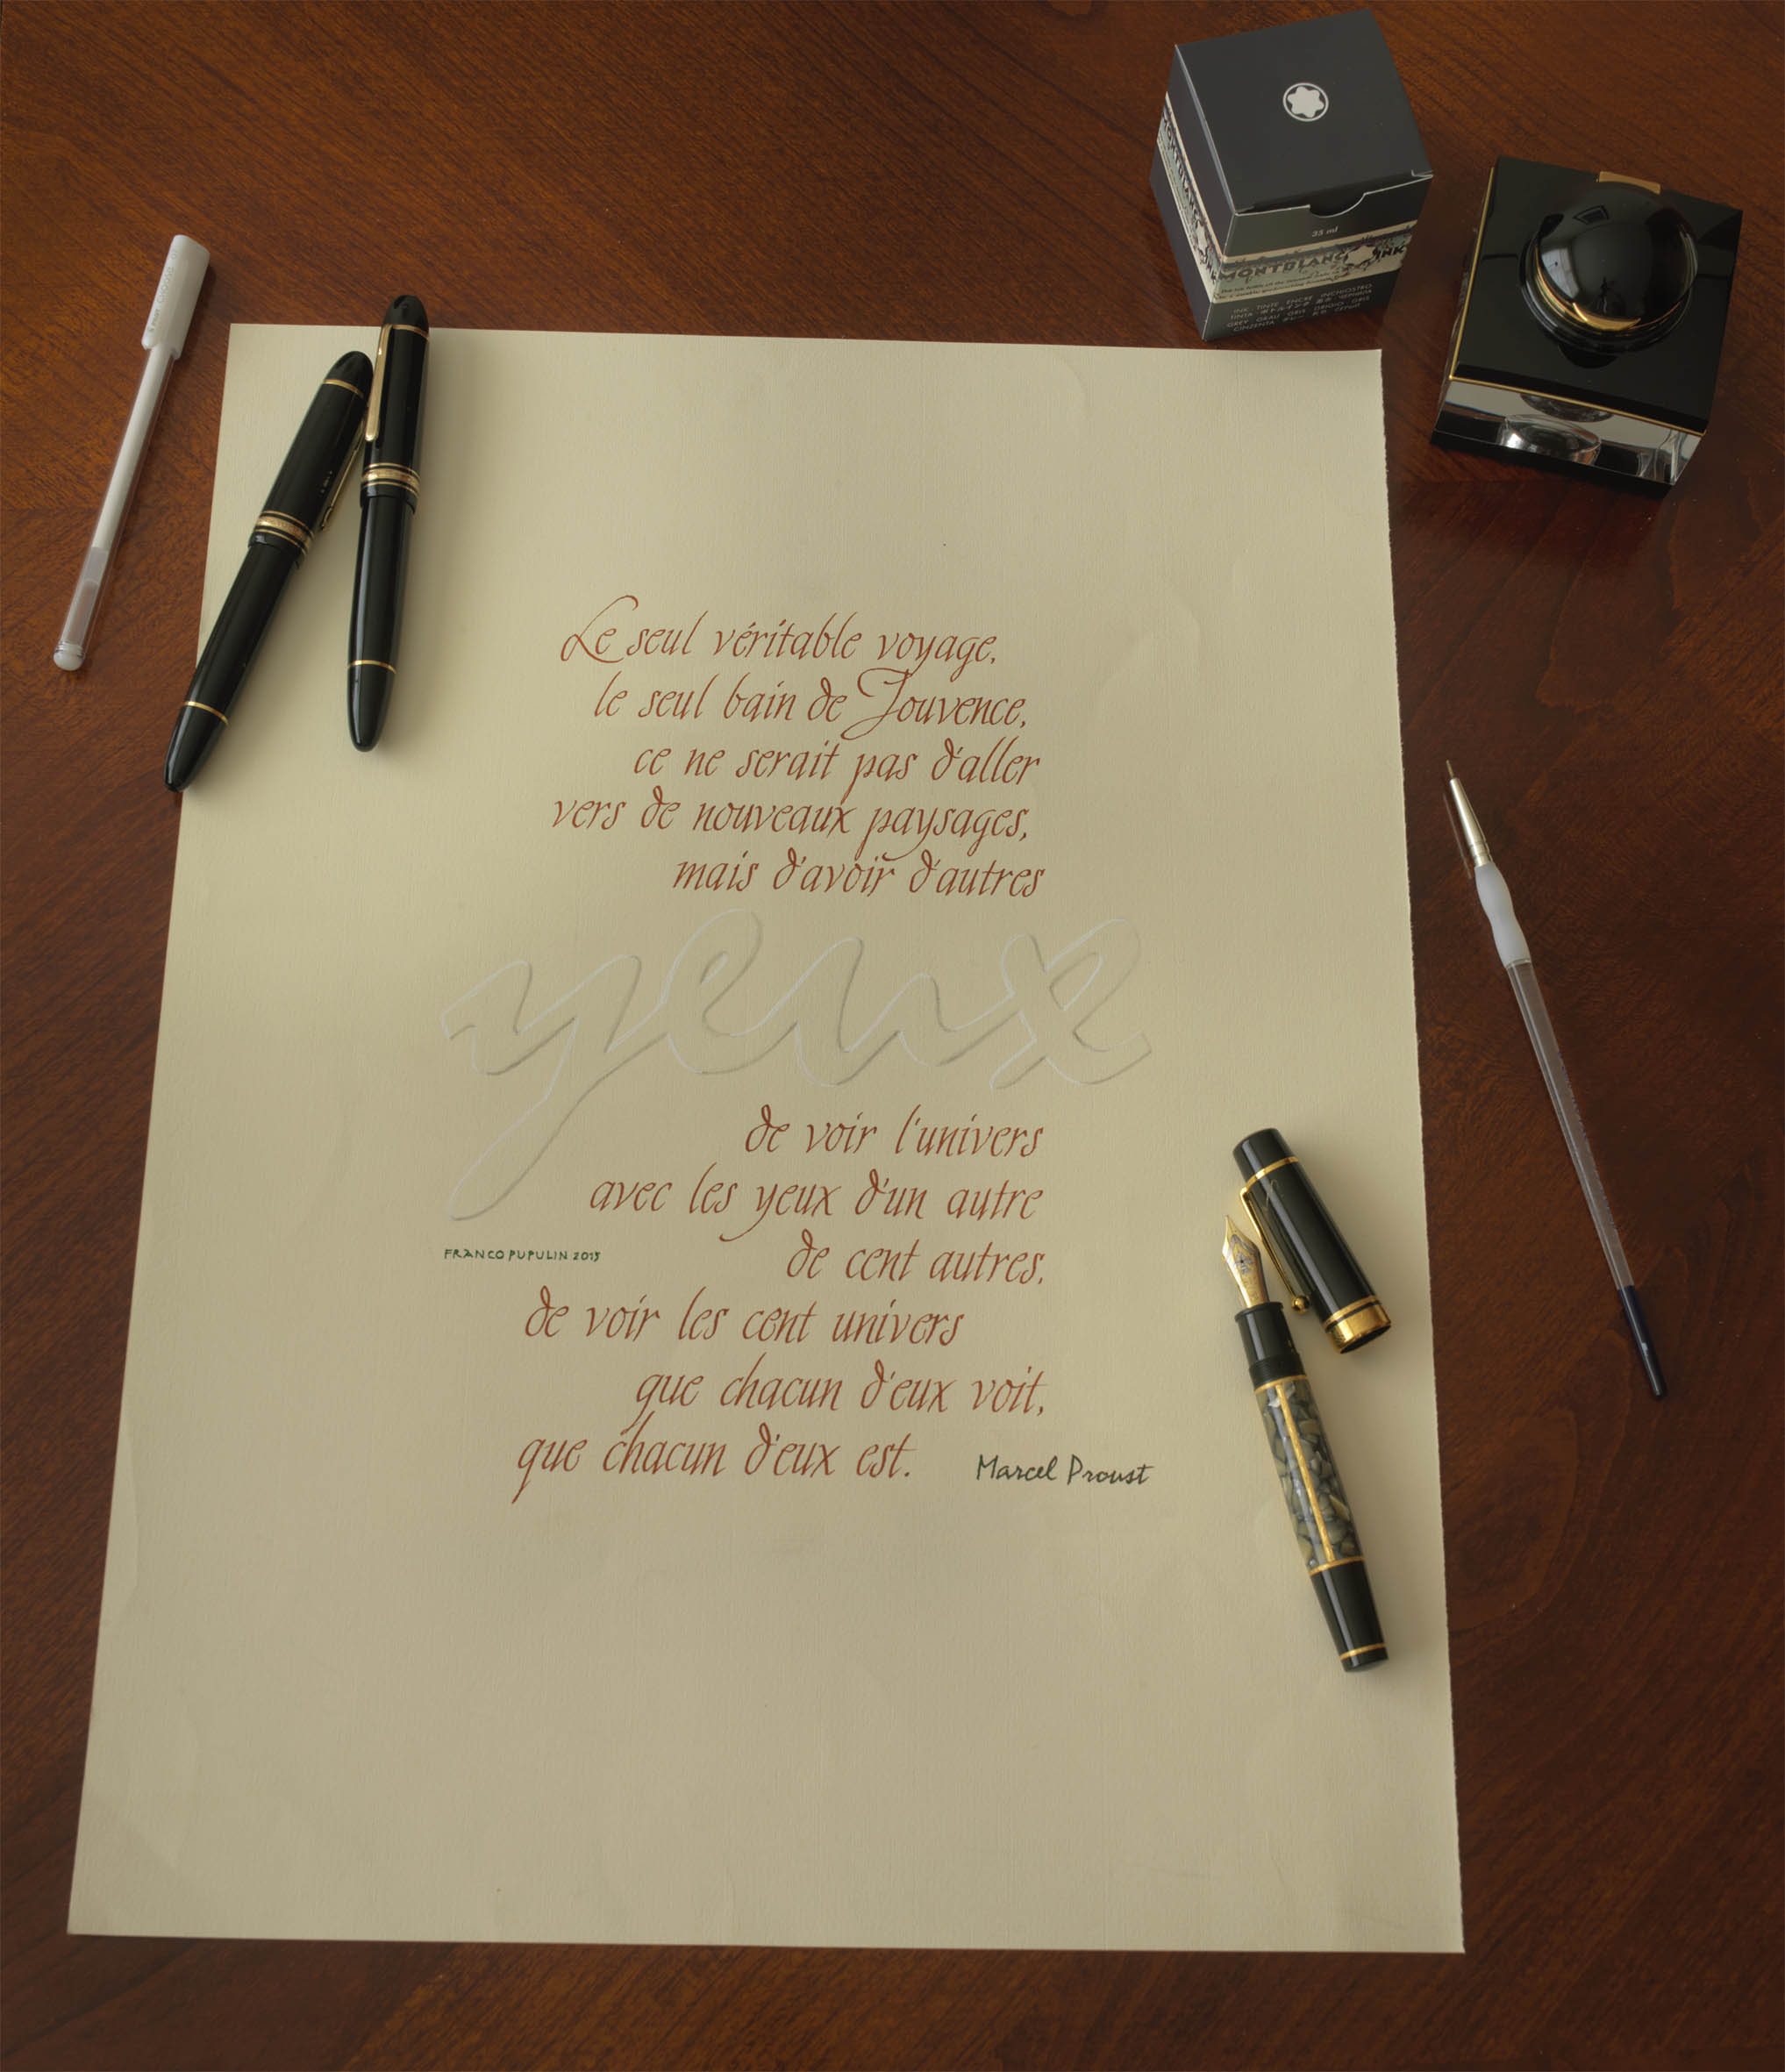 35 ml
MONTBLANC INK
INK TINTE ENCRE INCHIOSTRO
TINTA
GREY GRAU GRIS GRIGIO GRIS
CINZENTA
Le seul véritable voyage,
le seul bain de Jouvence,
ce ne serait pas d'aller
vers de nouveaux paysages,
mais d'avoir d'autres
yeux
de voir l'univers
avec les yeux d'un autre
de cent autres,
FRANCO PUPULIN 2015
de voir les cent univers
que chacun d'eux voit,
que chacun d'eux est.
Marcel Proust